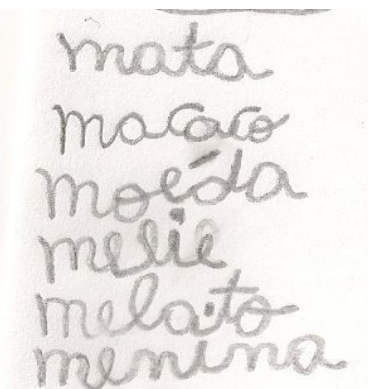 mata
macaco
moéda
melie
melato
menina